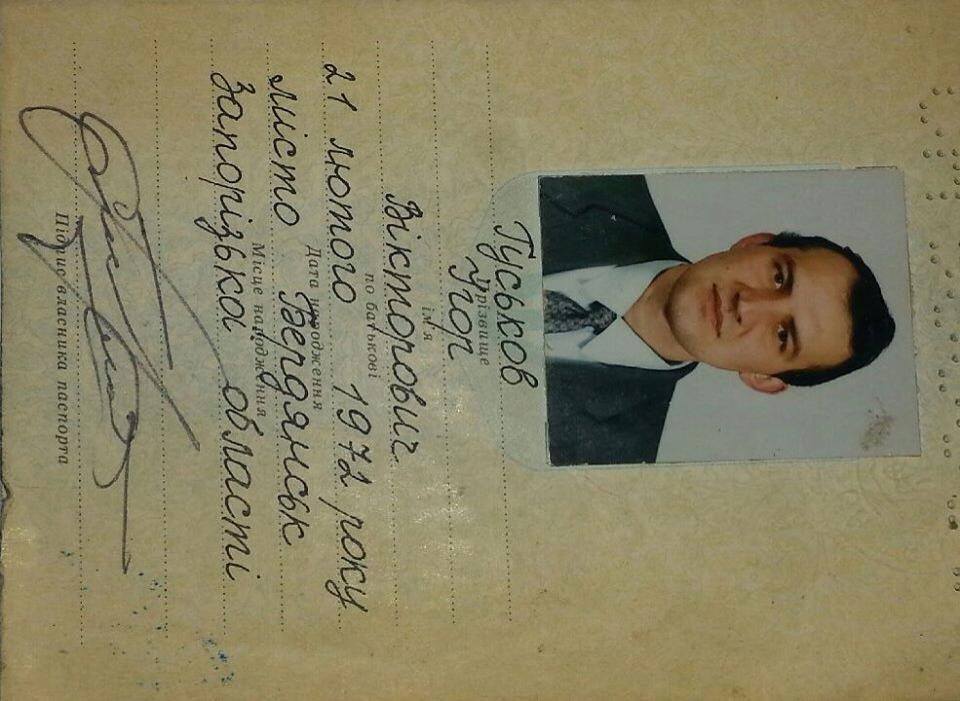 Гуськов
Прізвище
Ігор
ім'я
Вікторович
по батькові
21 лютого 1972 року
Дата народження
місто Бердянськ
Місце народження
Запорізька області
Підпис власника паспорта